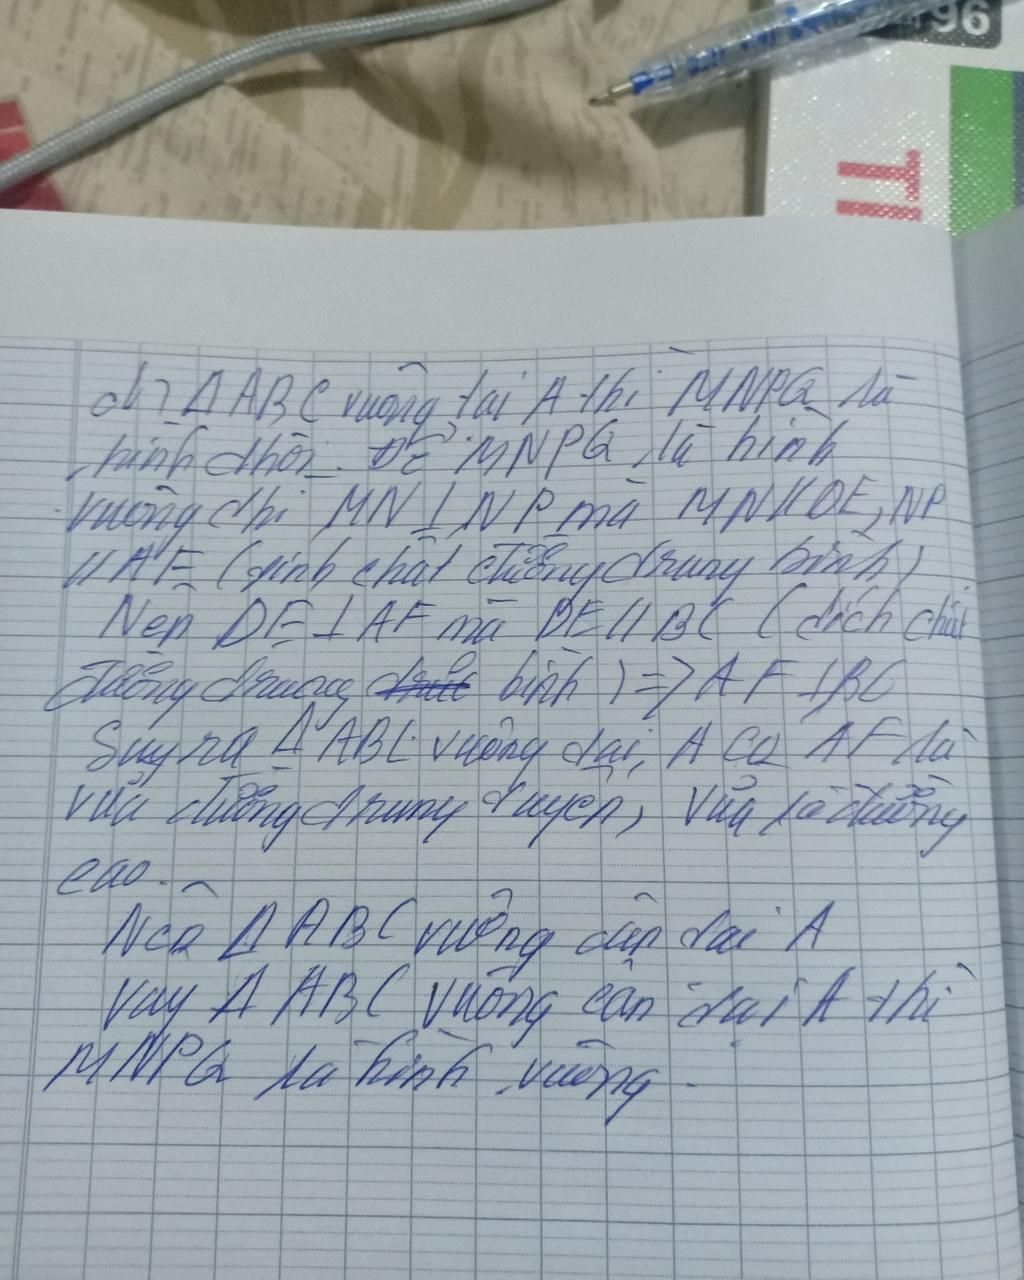 96
TI
d) Δ ABC vuông tại A thì MNPQ là
hình thoi. Để MNPQ là hình
vuông thì MN ⊥ NP mà MN // DE, NP
// AF (tính chất đường trung bình)
Nên DE ⊥ AF mà DE // BC (tích chất
đường trung bình) => AF ⊥ BC
Suy ra Δ ABC vuông tại A có AF là
vừa đường trung tuyến, vừa là đường
cao.
Nên Δ ABC vuông cân tại A
Vậy Δ ABC vuông cân tại A thì
MNPQ là hình vuông.